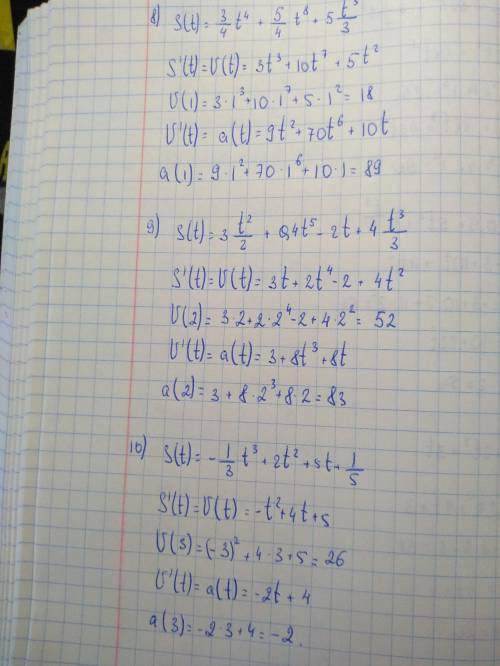 8) S(t) = 3/4 t⁴ + 5/4 t⁸ + 5 t³/3
S'(t) = U(t) = 3t³ + 10t⁷ + 5t²
U(1) = 3·1³ + 10·1⁷ + 5·1² = 18
U'(t) = a(t) = 9t² + 70t⁶ + 10t
a(1) = 9·1² + 70·1⁶ + 10·1 = 89
9) S(t) = 3 t²/2 + 0,4t⁵ - 2t + 4 t³/3
S'(t) = U(t) = 3t + 2t⁴ - 2 + 4t²
U(2) = 3·2 + 2·2⁴ - 2 + 4·2² = 52
U'(t) = a(t) = 3 + 8t³ + 8t
a(2) = 3 + 8·2³ + 8·2 = 83
10) S(t) = -1/3 t³ + 2t² + 5t + 1/5
S'(t) = U(t) = -t² + 4t + 5
U(3) = (-3)² + 4·3 + 5 = 26
U'(t) = a(t) = -2t + 4
a(3) = -2·3 + 4 = -2.